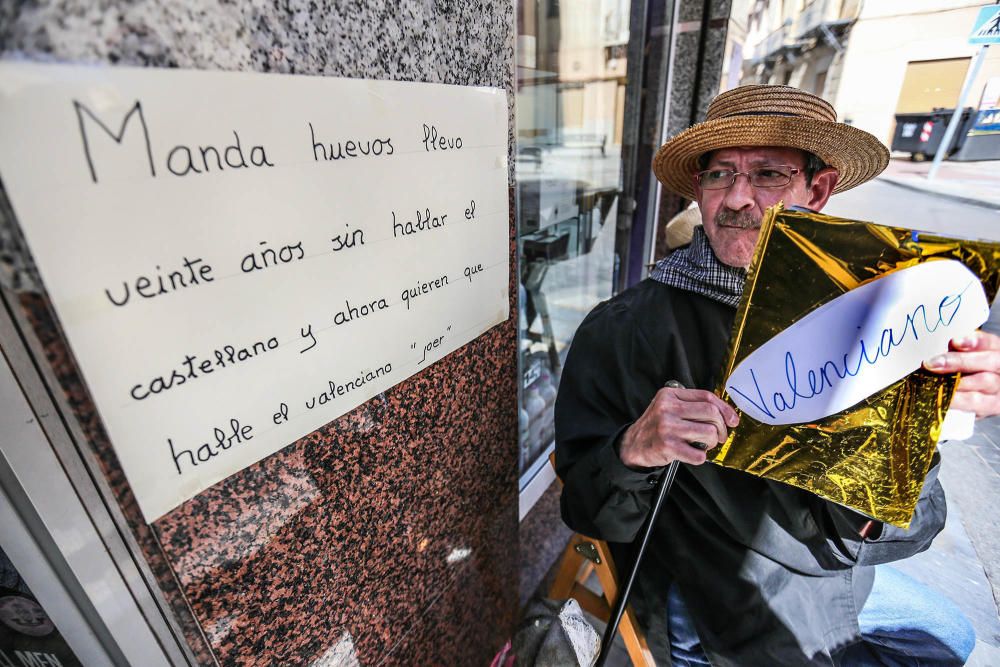 Manda huevos llevo
veinte años sin hablar el
castellano y ahora quieren que
hable el valenciano "joer"
Valenciano